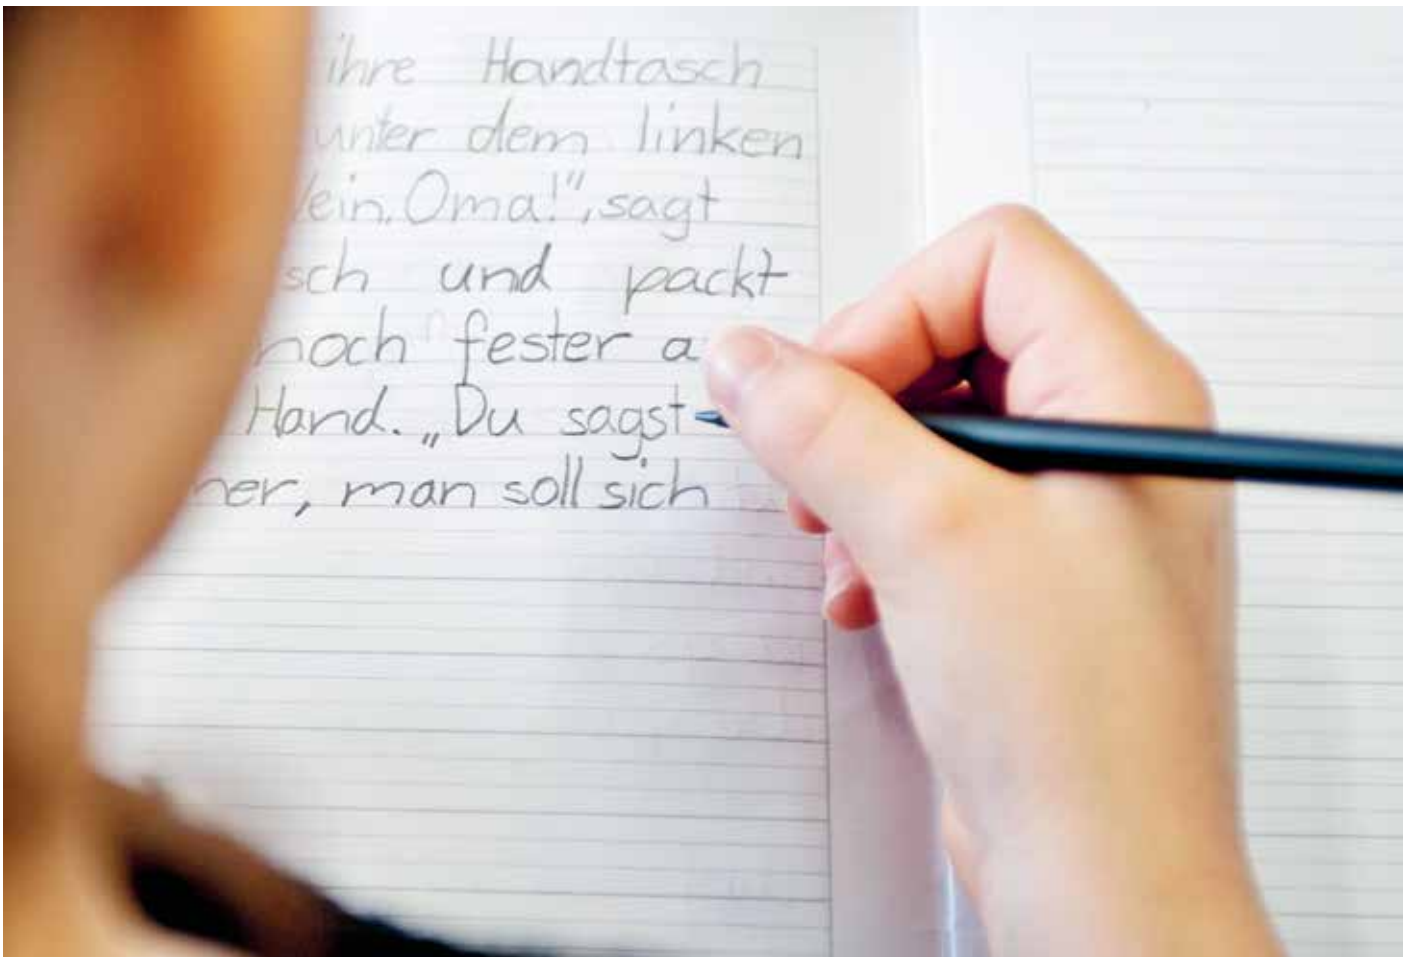 ihre Handtasch
unter dem linken
ein, Oma!", sagt
sch und packt
noch fester a
Hand. „Du sagst
er, man soll sich